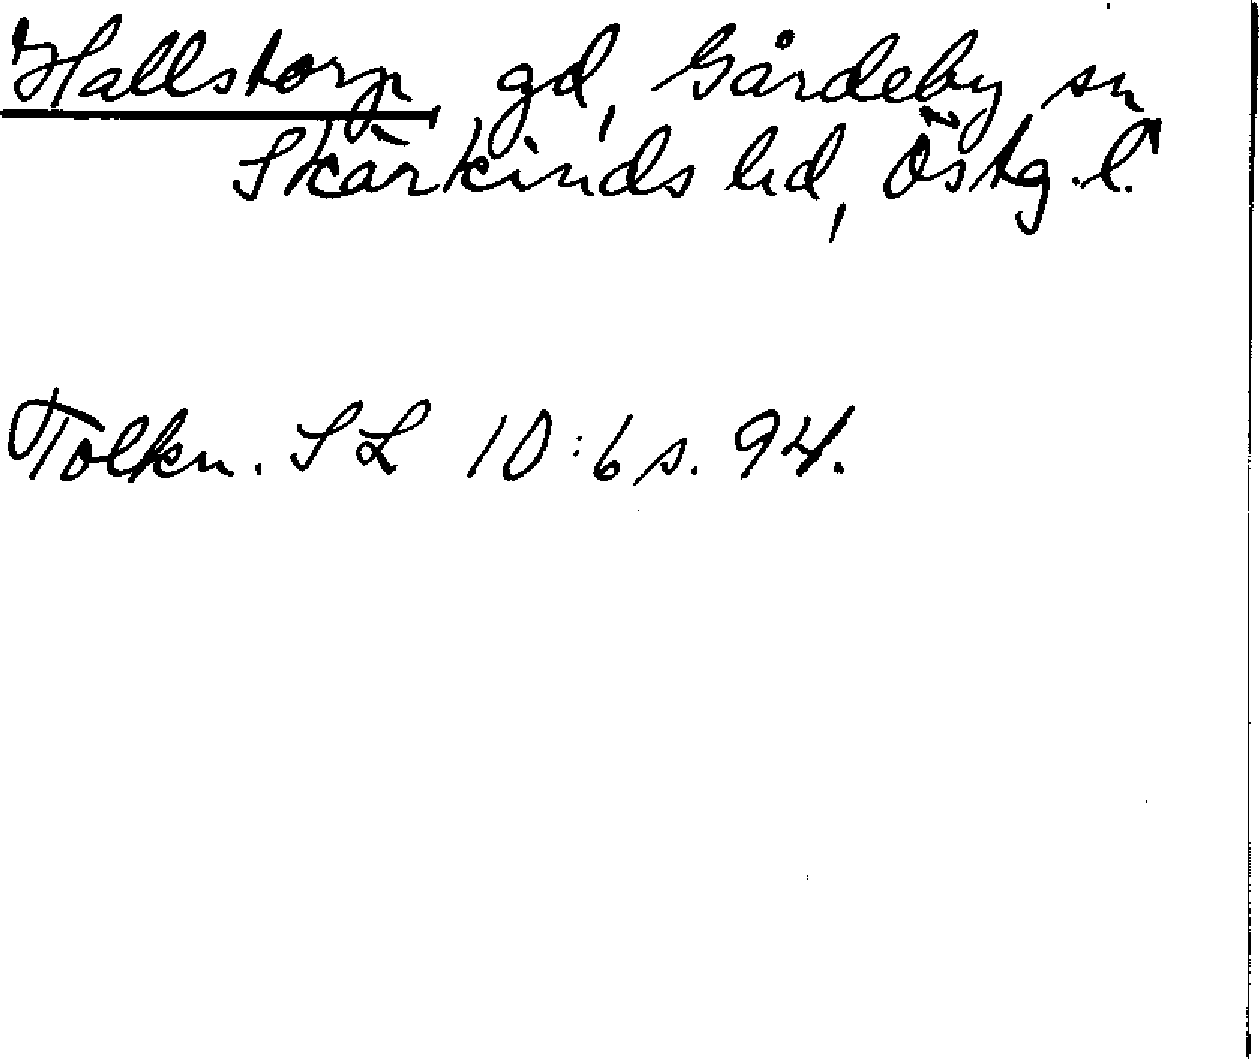 Hallstorp, gd, Gårdeby sn
Skärkinds hd, Östg.l.
Tolkn. SL 10:6 s. 94.